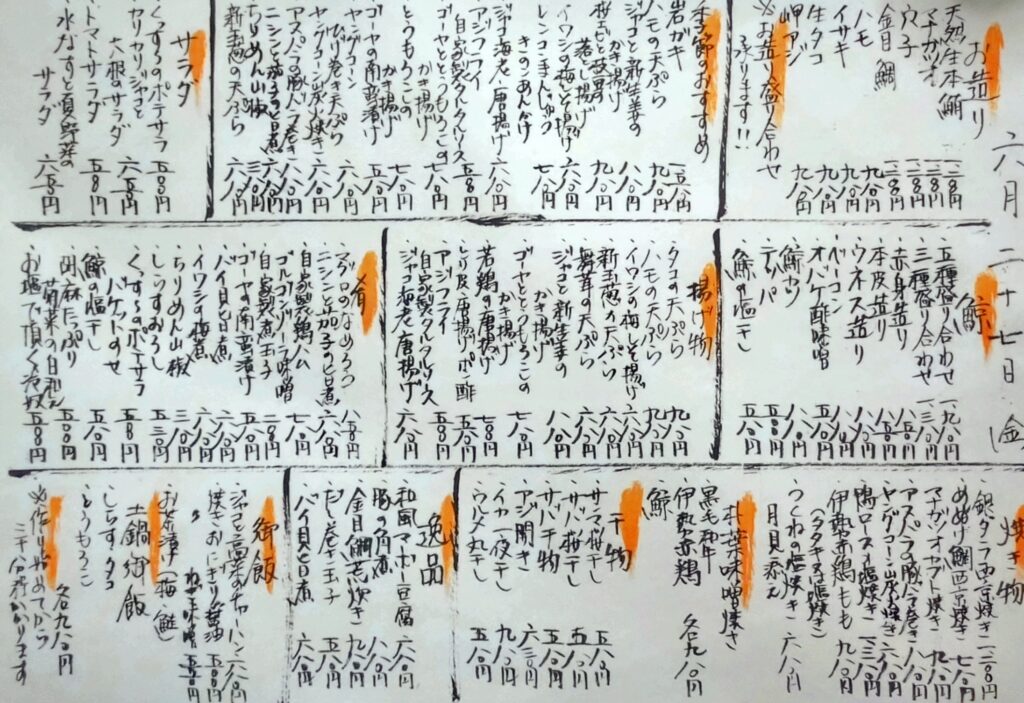 六月二十七日 金
お造り
天然生本鮪 一二八〇円
マナガツオ 一二八〇円
穴子 一二八〇円
金目鯛 一二八〇円
ハモ 九八〇円
イサキ 九八〇円
生タコ 九八〇円
岬アジ 九八〇円
※お造り盛り合わせ
承ります!!
季節のおすすめ
岩ガキ
ハモの天ぷら 九八〇円
ジャコと新生姜の
かき揚げ 八八〇円
落とし揚げ 九八〇円
イワシの梅しそ揚げ 六八〇円
レンコンまんじゅう
きのこあんかけ 七八〇円
ジャコ海老唐揚げ 六八〇円
アジフライ
自家製タルタルソース
ゴーヤととうもろこしの
かき揚げ 七八〇円
とうもろこしの
かき揚げ 七八〇円
ゴーヤの南蛮漬け 五八〇円
ヤングコーン炭火焼き 六八〇円
アスパラの豚バラ巻き 六八〇円
ニシンと茄子の旨煮 六八〇円
ちりめん山椒 三八〇円
新玉葱の天ぷら 六八〇円
サラダ
くずしのポテサラ 五八〇円
カリカリジャコと
大根のサラダ 六八〇円
トマトサラダ 五八〇円
水なすと夏野菜の
サラダ 六八〇円
鯨
五種盛り合わせ 一九八〇円
三種盛り合わせ 一三八〇円
赤身造り
本皮造り
ウネス造り
ベーコン
オバケ酢味噌
鯨カツ
テッパ
鯨の塩干し
揚げ物
タコの天ぷら 九八〇円
ハモの天ぷら 九八〇円
イワシの梅しそ揚げ 六八〇円
新玉葱の天ぷら 六八〇円
舞茸の天ぷら
ジャコと新生姜の
かき揚げ 八八〇円
ゴーヤととうもろこしの
かき揚げ 七八〇円
若鶏の唐揚げ
とり皮唐揚げポン酢
アジフライ
自家製タルタルソース
ジャコ海老唐揚げ 六八〇円
肴
マグロのなめろう
ニシンと茄子の旨煮 六八〇円
自家製鶏ハム
ゴルゴンゾーラ味噌
自家製煮玉子
ゴーヤの南蛮漬け 五八〇円
バイ貝旨煮 六八〇円
イワシの梅煮 六八〇円
ちりめん山椒 三八〇円
しらすおろし
くずしのポテサラ
バゲットのせ
鯨の塩干し
胡麻たっぷり
菊菜の白和え
お塩で頂く冷奴
焼き物
銀ダラ西京焼き 一二八〇円
めぬけ鯛西京焼き
マナガツオカブト焼き
アスパラの豚バラ巻き 六八〇円
ヤングコーン炭火焼き 六八〇円
鴨ロース塩焼き
伊勢赤鶏もも 九八〇円
(タタキ又は塩焼き)
つくねの塩焼き
月見添え 六八〇円
朴葉味噌焼き
黒毛和牛
伊勢赤鶏 各九八〇円
鯨
干物
サンマ桜干し
サバ桜干し
サバ干物
アジ開き
イカ一夜干し 九八〇円
ウルメ丸干し 五八〇円
逸品
和風マーボー豆腐 六八〇円
豚の角煮 八八〇円
金目鯛荒炊き 九八〇円
だし巻き玉子 五八〇円
バイ貝旨煮 六八〇円
御飯
ジャコと高菜のチャーハン 六八〇円
焼きおにぎり 醤油
〃 ねぎ味噌
お茶漬 梅 鮭
土鍋御飯
しらす タコ
とうもろこし 各九八〇円
※作り始めてから
三十分程かかります